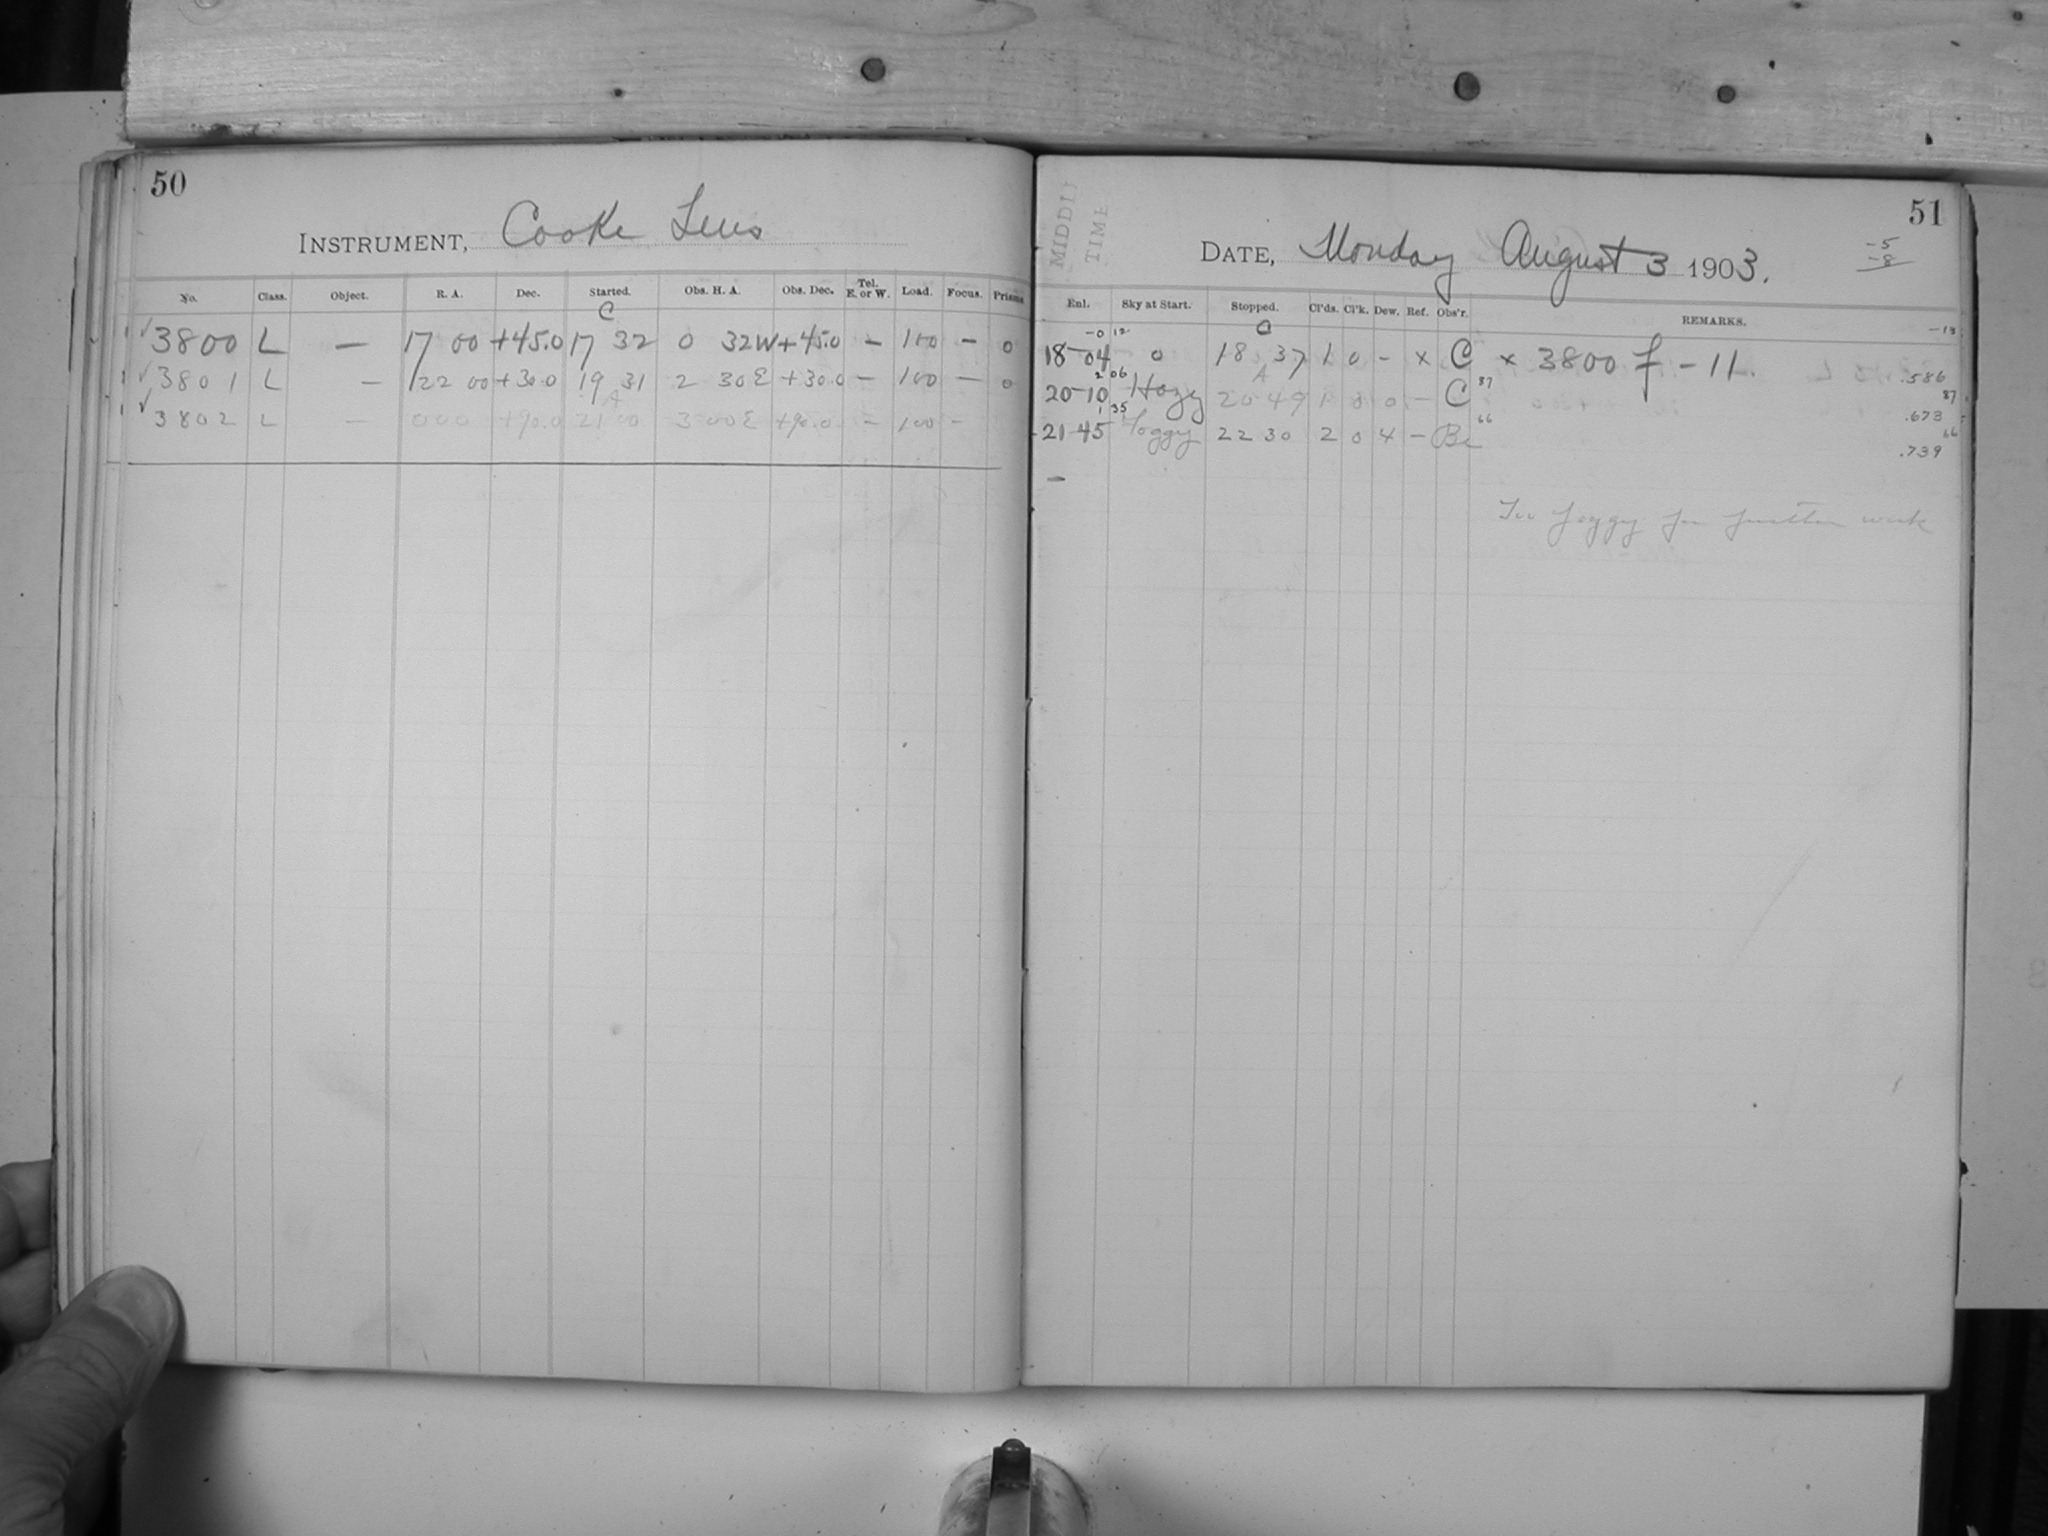 50
INSTRUMENT, Cooke Lens
No. Class. Object. R. A. Dec. Started. Obs. H. A. Obs. Dec. Tel. E. or W. Load. Focus. Prisms
C
✓ 3800 L — 17 00 +45.0 17 32 0 32W +45.0 – 100 – 0
✓ 3801 L – 22 00 +30.0 19 31 2 30E +30.0 – 100 – 0
A
✓ 3802 L – 0 00 +90.0 21 00 3 00E +90.0 – 100 –
MIDDL
TIME
51
DATE, Monday August 3 1903.
-5
-8
Enl. Sky at Start. Stopped. Cl'ds. Cl'k. Dew. Ref. Obs'r. REMARKS.
-0 12 C -13
18-04 0 18 37 1 0 – × C × 3800 f – 11.
2 06 A 87 .586
20-10 Hazy 20 49 1 0 0 – C 87
1 35 66 .673
21-45 Foggy 22 30 2 0 4 – Be 66
.739
–
Too foggy for further work